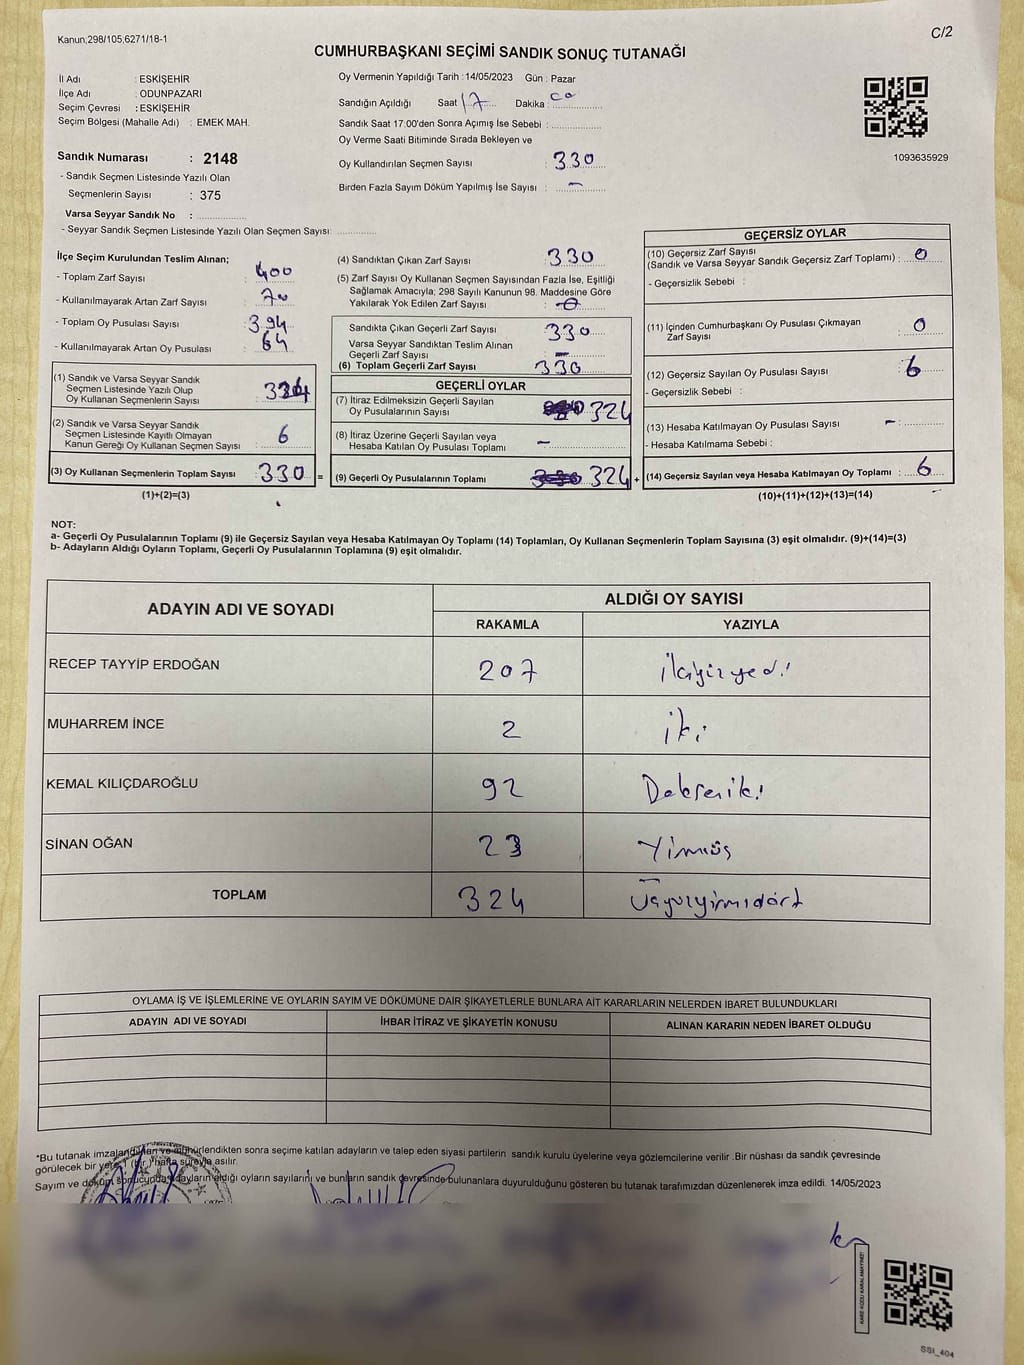 Kanun;298/105;6271/18-1
C/2
CUMHURBAŞKANI SEÇİMİ SANDIK SONUÇ TUTANAĞI
İl Adı : ESKİŞEHİR
İlçe Adı : ODUNPAZARI
Seçim Çevresi : ESKİŞEHİR
Seçim Bölgesi (Mahalle Adı) : EMEK MAH.
Sandık Numarası : 2148
- Sandık Seçmen Listesinde Yazılı Olan
Seçmenlerin Sayısı : 375
Varsa Seyyar Sandık No :
- Seyyar Sandık Seçmen Listesinde Yazılı Olan Seçmen Sayısı:
Oy Vermenin Yapıldığı Tarih :14/05/2023 Gün : Pazar
Sandığın Açıldığı Saat 17 Dakika : 00
Sandık Saat 17:00'den Sonra Açımış İse Sebebi :
Oy Verme Saati Bitiminde Sırada Bekleyen ve
Oy Kullandırılan Seçmen Sayısı : 330
Birden Fazla Sayım Döküm Yapılmış İse Sayısı : -
1093635929
İlçe Seçim Kurulundan Teslim Alınan;
- Toplam Zarf Sayısı : 400
- Kullanılmayarak Artan Zarf Sayısı : 70
- Toplam Oy Pusulası Sayısı : 394
- Kullanılmayarak Artan Oy Pusulası : 64
(1) Sandık ve Varsa Seyyar Sandık
Seçmen Listesinde Yazılı Olup
Oy Kullanan Seçmenlerin Sayısı : 324
(2) Sandık ve Varsa Seyyar Sandık
Seçmen Listesinde Kayıtlı Olmayan
Kanun Gereği Oy Kullanan Seçmen Sayısı : 6
(3) Oy Kullanan Seçmenlerin Toplam Sayısı : 330 =
(1)+(2)=(3)
(4) Sandıktan Çıkan Zarf Sayısı : 330
(5) Zarf Sayısı Oy Kullanan Seçmen Sayısından Fazla İse, Eşitliği
Sağlamak Amacıyla; 298 Sayılı Kanunun 98. Maddesine Göre
Yakılarak Yok Edilen Zarf Sayısı : 0
Sandıkta Çıkan Geçerli Zarf Sayısı : 330
Varsa Seyyar Sandıktan Teslim Alınan
Geçerli Zarf Sayısı : -
(6) Toplam Geçerli Zarf Sayısı : 330
GEÇERLİ OYLAR
(7) İtiraz Edilmeksizin Geçerli Sayılan
Oy Pusulalarının Sayısı : 324
(8) İtiraz Üzerine Geçerli Sayılan veya
Hesaba Katılan Oy Pusulası Toplamı : -
(9) Geçerli Oy Pusulalarının Toplamı : 324 +
GEÇERSİZ OYLAR
(10) Geçersiz Zarf Sayısı
(Sandık ve Varsa Seyyar Sandık Geçersiz Zarf Toplamı) : 0
- Geçersizlik Sebebi :
(11) İçinden Cumhurbaşkanı Oy Pusulası Çıkmayan
Zarf Sayısı : 0
(12) Geçersiz Sayılan Oy Pusulası Sayısı : 6
- Geçersizlik Sebebi :
(13) Hesaba Katılmayan Oy Pusulası Sayısı : -
- Hesaba Katılmama Sebebi :
(14) Geçersiz Sayılan veya Hesaba Katılmayan Oy Toplamı : 6
(10)+(11)+(12)+(13)=(14)
NOT:
a- Geçerli Oy Pusulalarının Toplamı (9) ile Geçersiz Sayılan veya Hesaba Katılmayan Oy Toplamı (14) Toplamları, Oy Kullanan Seçmenlerin Toplam Sayısına (3) eşit olmalıdır. (9)+(14)=(3)
b- Adayların Aldığı Oyların Toplamı, Geçerli Oy Pusulalarının Toplamına (9) eşit olmalıdır.
ADAYIN ADI VE SOYADI
ALDIĞI OY SAYISI
RAKAMLA YAZIYLA
RECEP TAYYİP ERDOĞAN 207 ikiyüzyedi
MUHARREM İNCE 2 iki
KEMAL KILIÇDAROĞLU 92 Doksaniki
SİNAN OĞAN 23 Yirmiüç
TOPLAM 324 Üçyüzyirmidört
OYLAMA İŞ VE İŞLEMLERİNE VE OYLARIN SAYIM VE DÖKÜMÜNE DAİR ŞİKAYETLERLE BUNLARA AİT KARARLARIN NELERDEN İBARET BULUNDUKLARI
ADAYIN ADI VE SOYADI İHBAR İTİRAZ VE ŞİKAYETİN KONUSU ALINAN KARARIN NEDEN İBARET OLDUĞU
*Bu tutanak imzalandıktan ve mühürlendikten sonra seçime katılan adayların ve talep eden siyasi partilerin sandık kurulu üyelerine veya gözlemcilerine verilir .Bir nüshası da sandık çevresinde
görülecek bir yere 1 (bir) hafta süreyle asılır.
Sayım ve döküm sonucunda adayların aldığı oyların sayılarını ve bunların sandık çevresinde bulunanlara duyurulduğunu gösteren bu tutanak tarafımızdan düzenlenerek imza edildi. 14/05/2023
KARE KODU KARALAMAYINIZ!
SSI_404